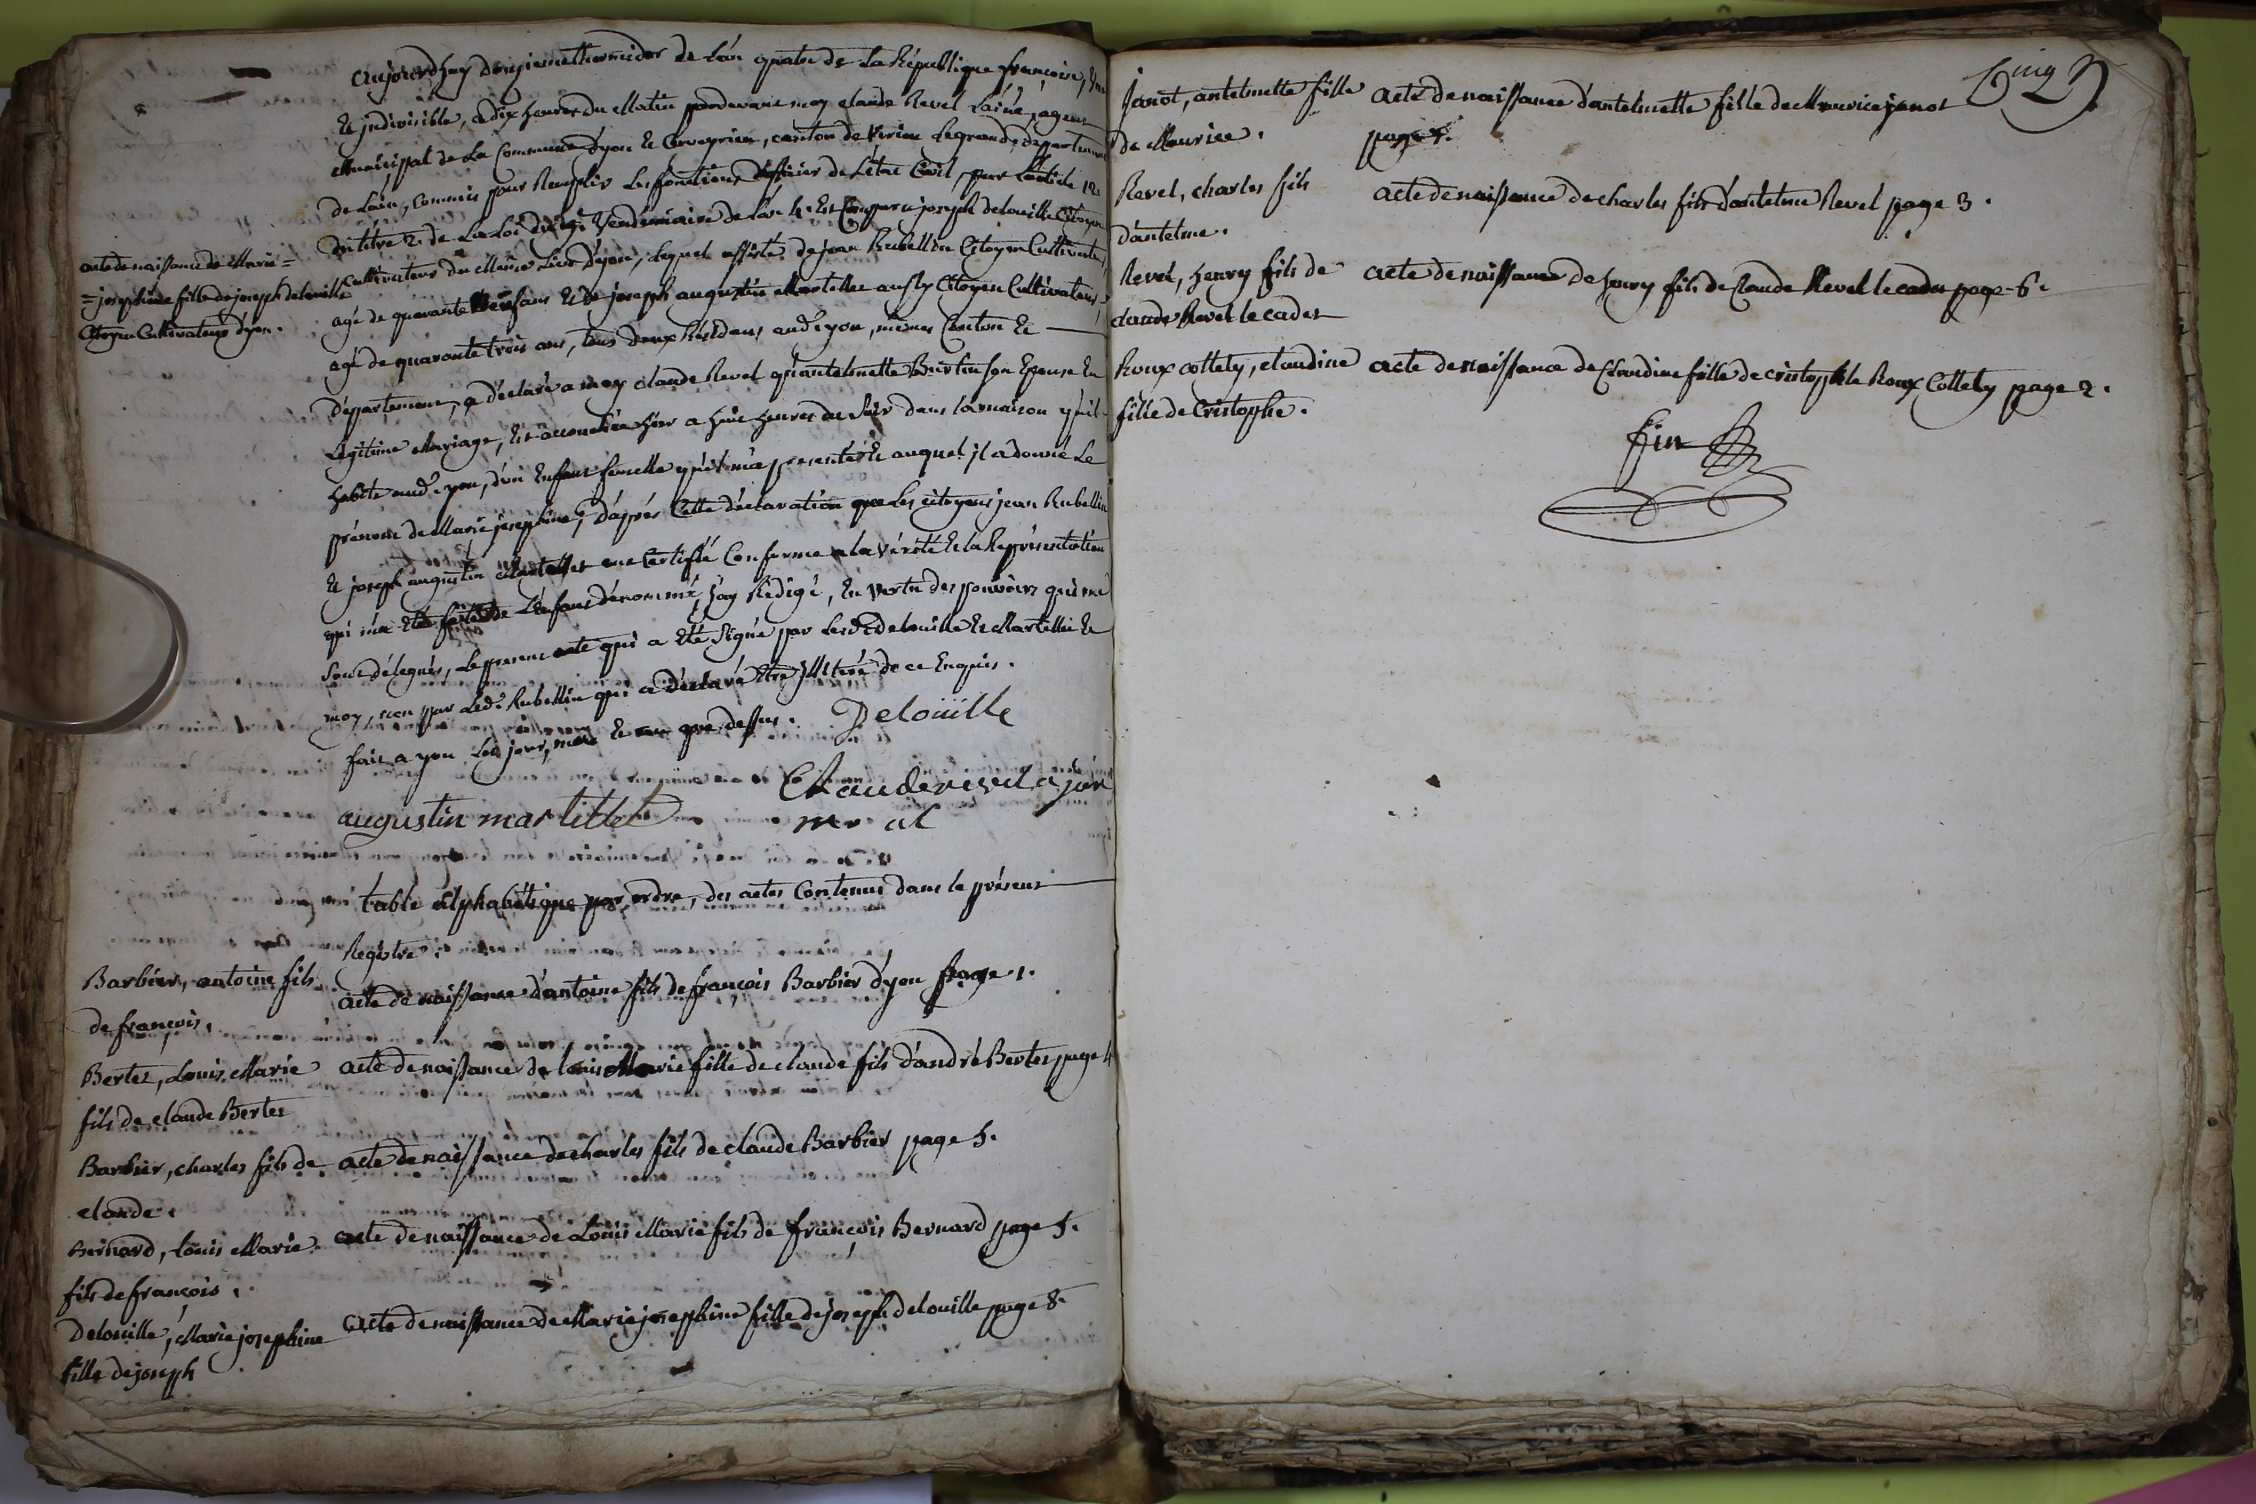 aujourdhuy douzieme thermidor de l'an quatre de la République françoise, une
et indivisible, a dix heures du matin pardevant moy claude Revel L'ainé, agent
municipal de la Commune d'yon et Cerveyrieu, canton de Virieu legrand, département
de L'ain, Commis pour Remplir les fonctions d'officier de L'état Civil, par L'article 12.
du titre 2. de la Loi du 19. Vendémiaire de L'an 4. Est Comparu joseph delouille Citoyen
acte de naissance de Marie =
= josephine fille de joseph delouille
Citoyen Cultivateur d'yon.
Cultivateur du même Lieu d'yon, lequel assisté de jean Rubellin Citoyen Cultivateur,
agé de quarante ans et de joseph augustin Martellet aussy Citoyen Cultivateur,
agé de quarante trois ans, tous deux Résidans aud. yon, mêmes Canton et
département, a déclaré a moy claude Revel qu'antelmette Burtin son Epouse En
Légitime Mariage, Est accouchée hier a huit heures du soir dans la maison qu'il
habite aud. yon, d'un Enfant femelle qu'il m'a presenté et auquel il a donné Le
prénom de Marie josephine; d'après Cette déclaration que Les citoyens jean Rubellin
et joseph augustin Martellet ont Certifié Conforme a la vérité et la Représentation
qui m'a Eté faite de L'Enfant dénommé, j'ay Rédigé, En vertu des pouvoirs qui me
sont délegués, Le présent acte qui a Eté signé par Lesd. delouille et Martellet et
moy, non par Led. Rubellin qui a déclaré être Illiteré de ce Enquis.
fait a yon Les jour, mois et an que dessus. Delouille
augustin martellet Claude revel ajan
mu al
table alphabétique par ordre, des actes Contenus dans le présent
Registre.
Barbier, antoine fils
de françois.
acte de naissance d'antoine fils de françois Barbier d'yon page 1.
Bertet, Louis Marie
fils de claude Bertet
acte de naissance de Louis Marie fille de claude fils d'andré Bertet page 4
Barbier, charles fils de
claude.
acte de naissance de charles fils de claude Barbier page 5.
Bernard, Louis Marie
fils de françois.
acte de naissance de Louis Marie fils de françois Bernard page 5.
Delouille, Marie josephine
fille de joseph
acte de naissance de Marie josephine fille de joseph delouille page 8.
Cinq
janot, antelmette fille
de Maurice.
acte de naissance d'antelmette fille de Maurice janot
page
Revel, charles fils
d'antelme.
acte de naissance de charles fils d'antelme Revel page 3.
Revel, henry fils de
claude Revel le cadet
acte de naissance de henry fils de Claude Revel le cadet page 6.
Roux collety, claudine
fille de Cristophe.
acte de naissance de Claudine fille de cristophe Roux Collety page 2.
fin